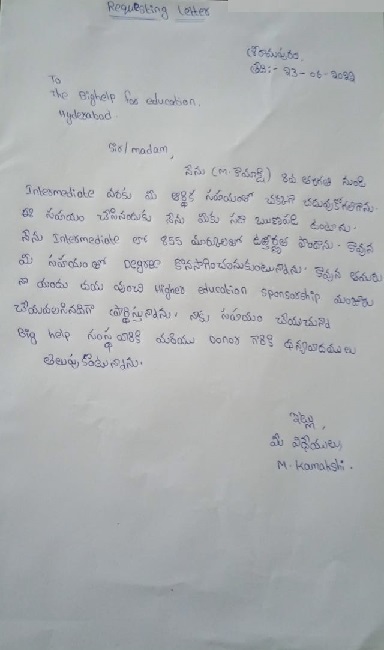 Requesting Letter
శ్రీరామపురం,
తేది:- 23-06-2022
To
The Bighelp for education,
Hyderabad.
Sir/madam,
నేను (M. కామాక్షి) 8వ తరగతి నుండి
Intermediate వరకు మీ ఆర్థిక సహాయంతో చక్కగా చదువుకోగలిగాను.
ఈ సహాయం చేసినందుకు నేను మీకు సదా ఋణపడి ఉంటాను.
నేను Intermediate లో 855 మార్కులతో ఉత్తీర్ణత పొందాను. కావున
మీ సహాయంతో Degreeను కొనసాగించదలచుకుంటున్నాను. కావున తమరు
నా యందు దయ వుంచి Higher education sponsorship మంజూరు
చేయవలసినదిగా ప్రార్థిస్తున్నాను. నాకు సహాయం చేయుచున్న
Big help సంస్థ వారికి మరియు Donor గారికి ధన్యవాదములు
తెలుపుకొంటున్నాను.
ఇట్లు,
మీ విధేయులు,
M. Kamakshi.